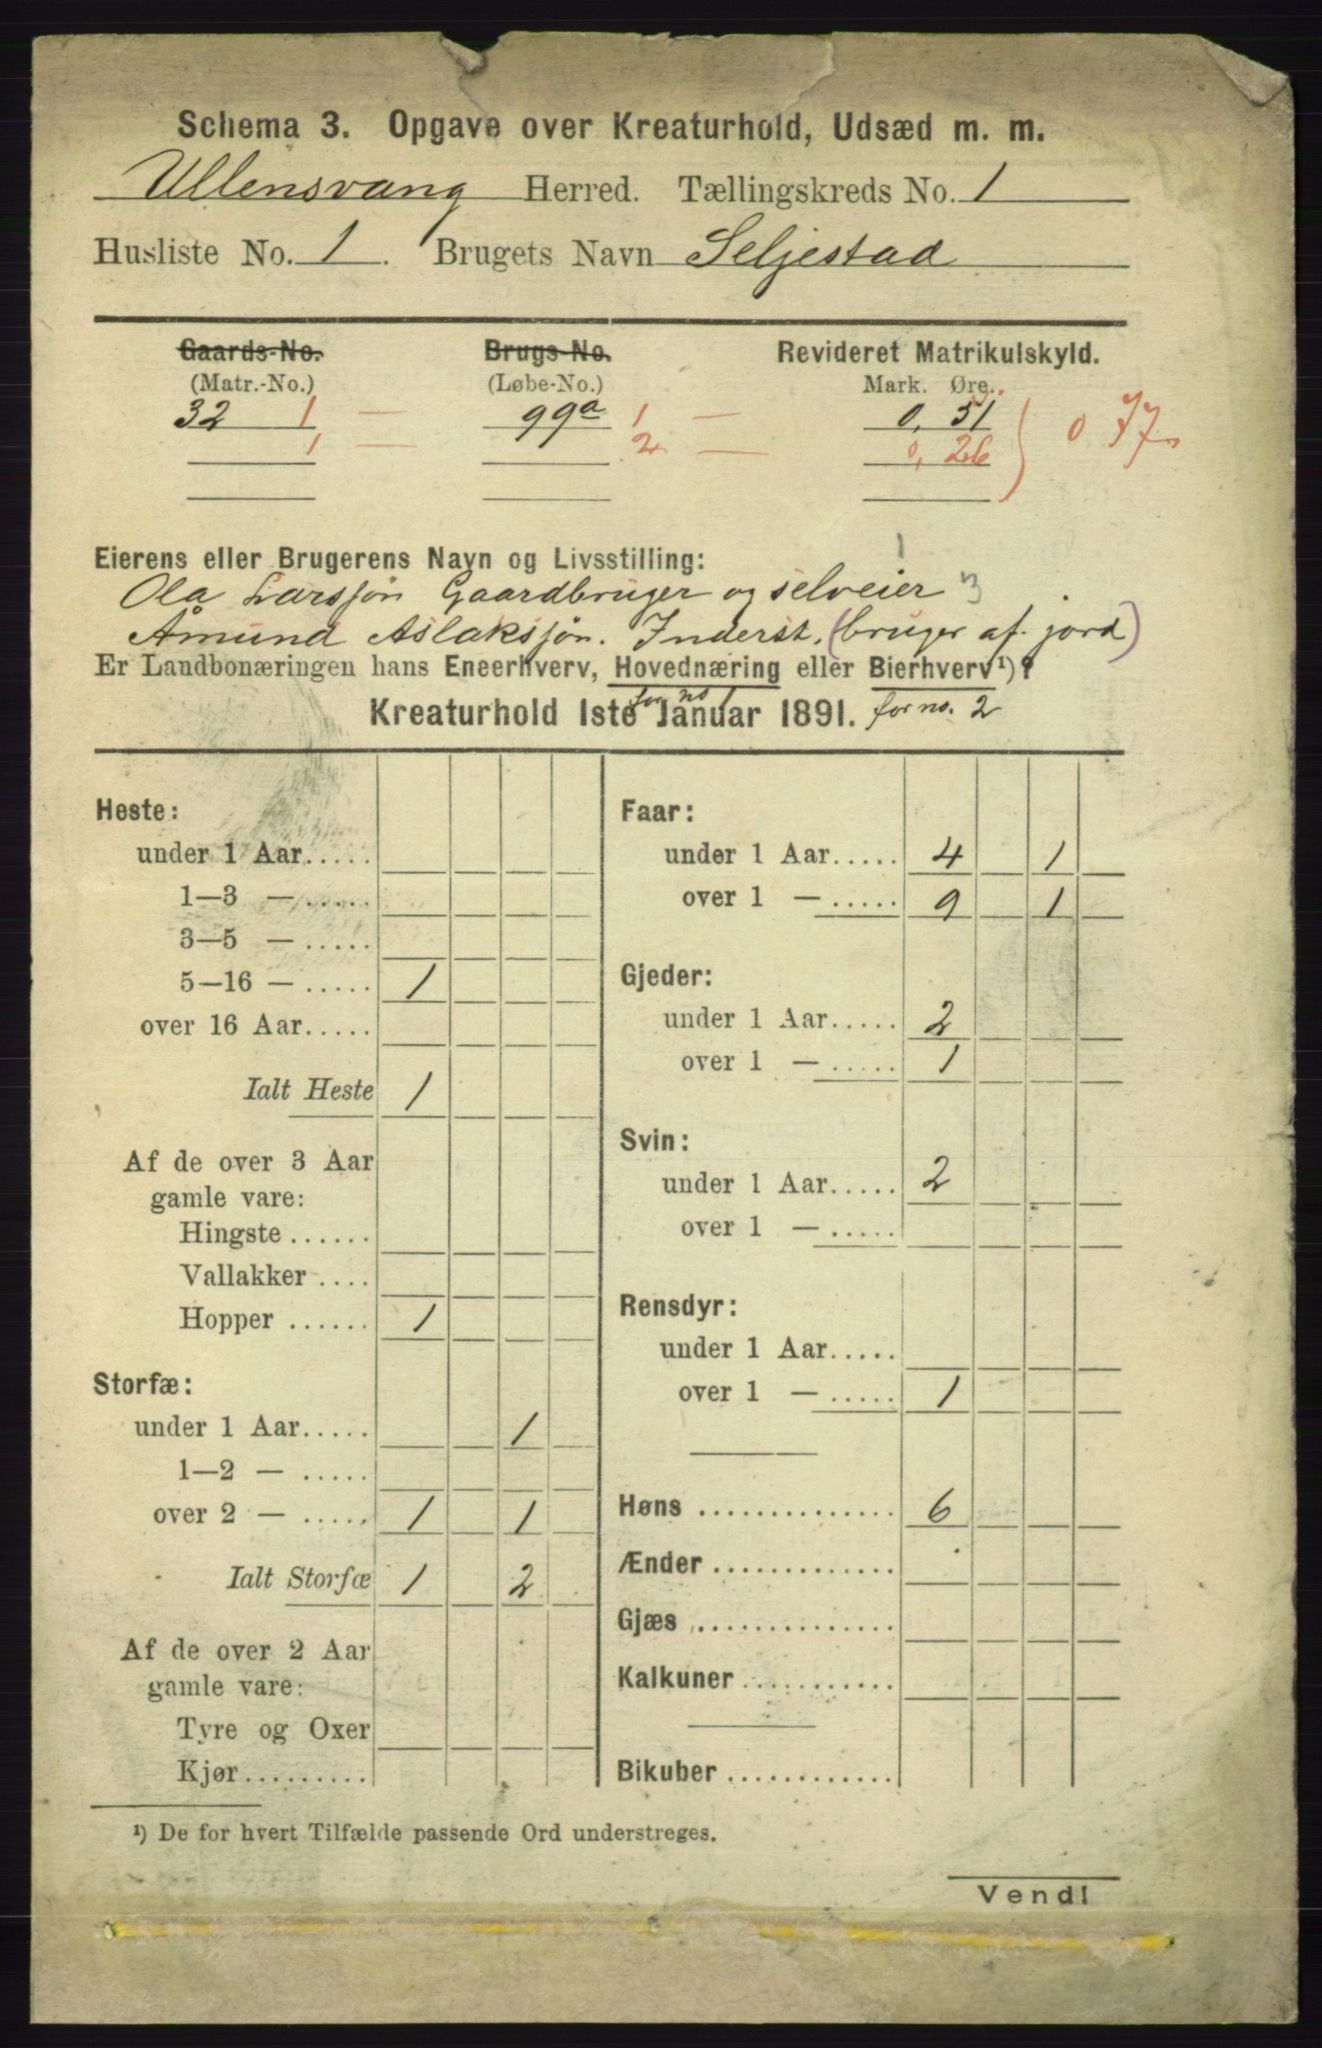 Schema 3. Opgave over Kreaturhold, Udsæd m. m.
Ullensvang Herred. Tællingskreds No. 1
Husliste No. 1. Brugets Navn Seljestad
Gaards-No. Brugs-No. Revideret Matrikulskyld.
(Matr.-No.) (Løbe-No.) Mark. Øre.
32 1 — 99a 1 — 0,51
1 — 2 — 0,26 0 77
Eierens eller Brugerens Navn og Livsstilling:
Ola Larssjøn Gaardbruger og selveier
Åmund Aslaksjøn. Inderst. (bruger af jord)
Er Landbonæringen hans Eneerhverv, Hovednæring eller Bierhverv¹)?
for no 1
Kreaturhold 1ste Januar 1891. for no. 2
Heste:
under 1 Aar.....
1—3 — .....
3—5 — .....
5—16 — ..... 1
over 16 Aar.....
Ialt Heste 1
Af de over 3 Aar
gamle vare:
Hingste ......
Vallakker ....
Hopper ...... 1
Storfæ:
under 1 Aar..... 1
1—2 — .....
over 2 — ..... 1 1
Ialt Storfæ 1 2
Af de over 2 Aar
gamle vare:
Tyre og Oxer
Kjør.........
Faar:
under 1 Aar..... 4 1
over 1 — ..... 9 1
Gjeder:
under 1 Aar..... 2
over 1 — ..... 1
Svin:
under 1 Aar..... 2
over 1 — .....
Rensdyr:
under 1 Aar.....
over 1 — ..... 1
Høns .............. 6
Ænder .............
Gjæs ..............
Kalkuner ...........
Bikuber ............
¹) De for hvert Tilfælde passende Ord understreges.
Vend!